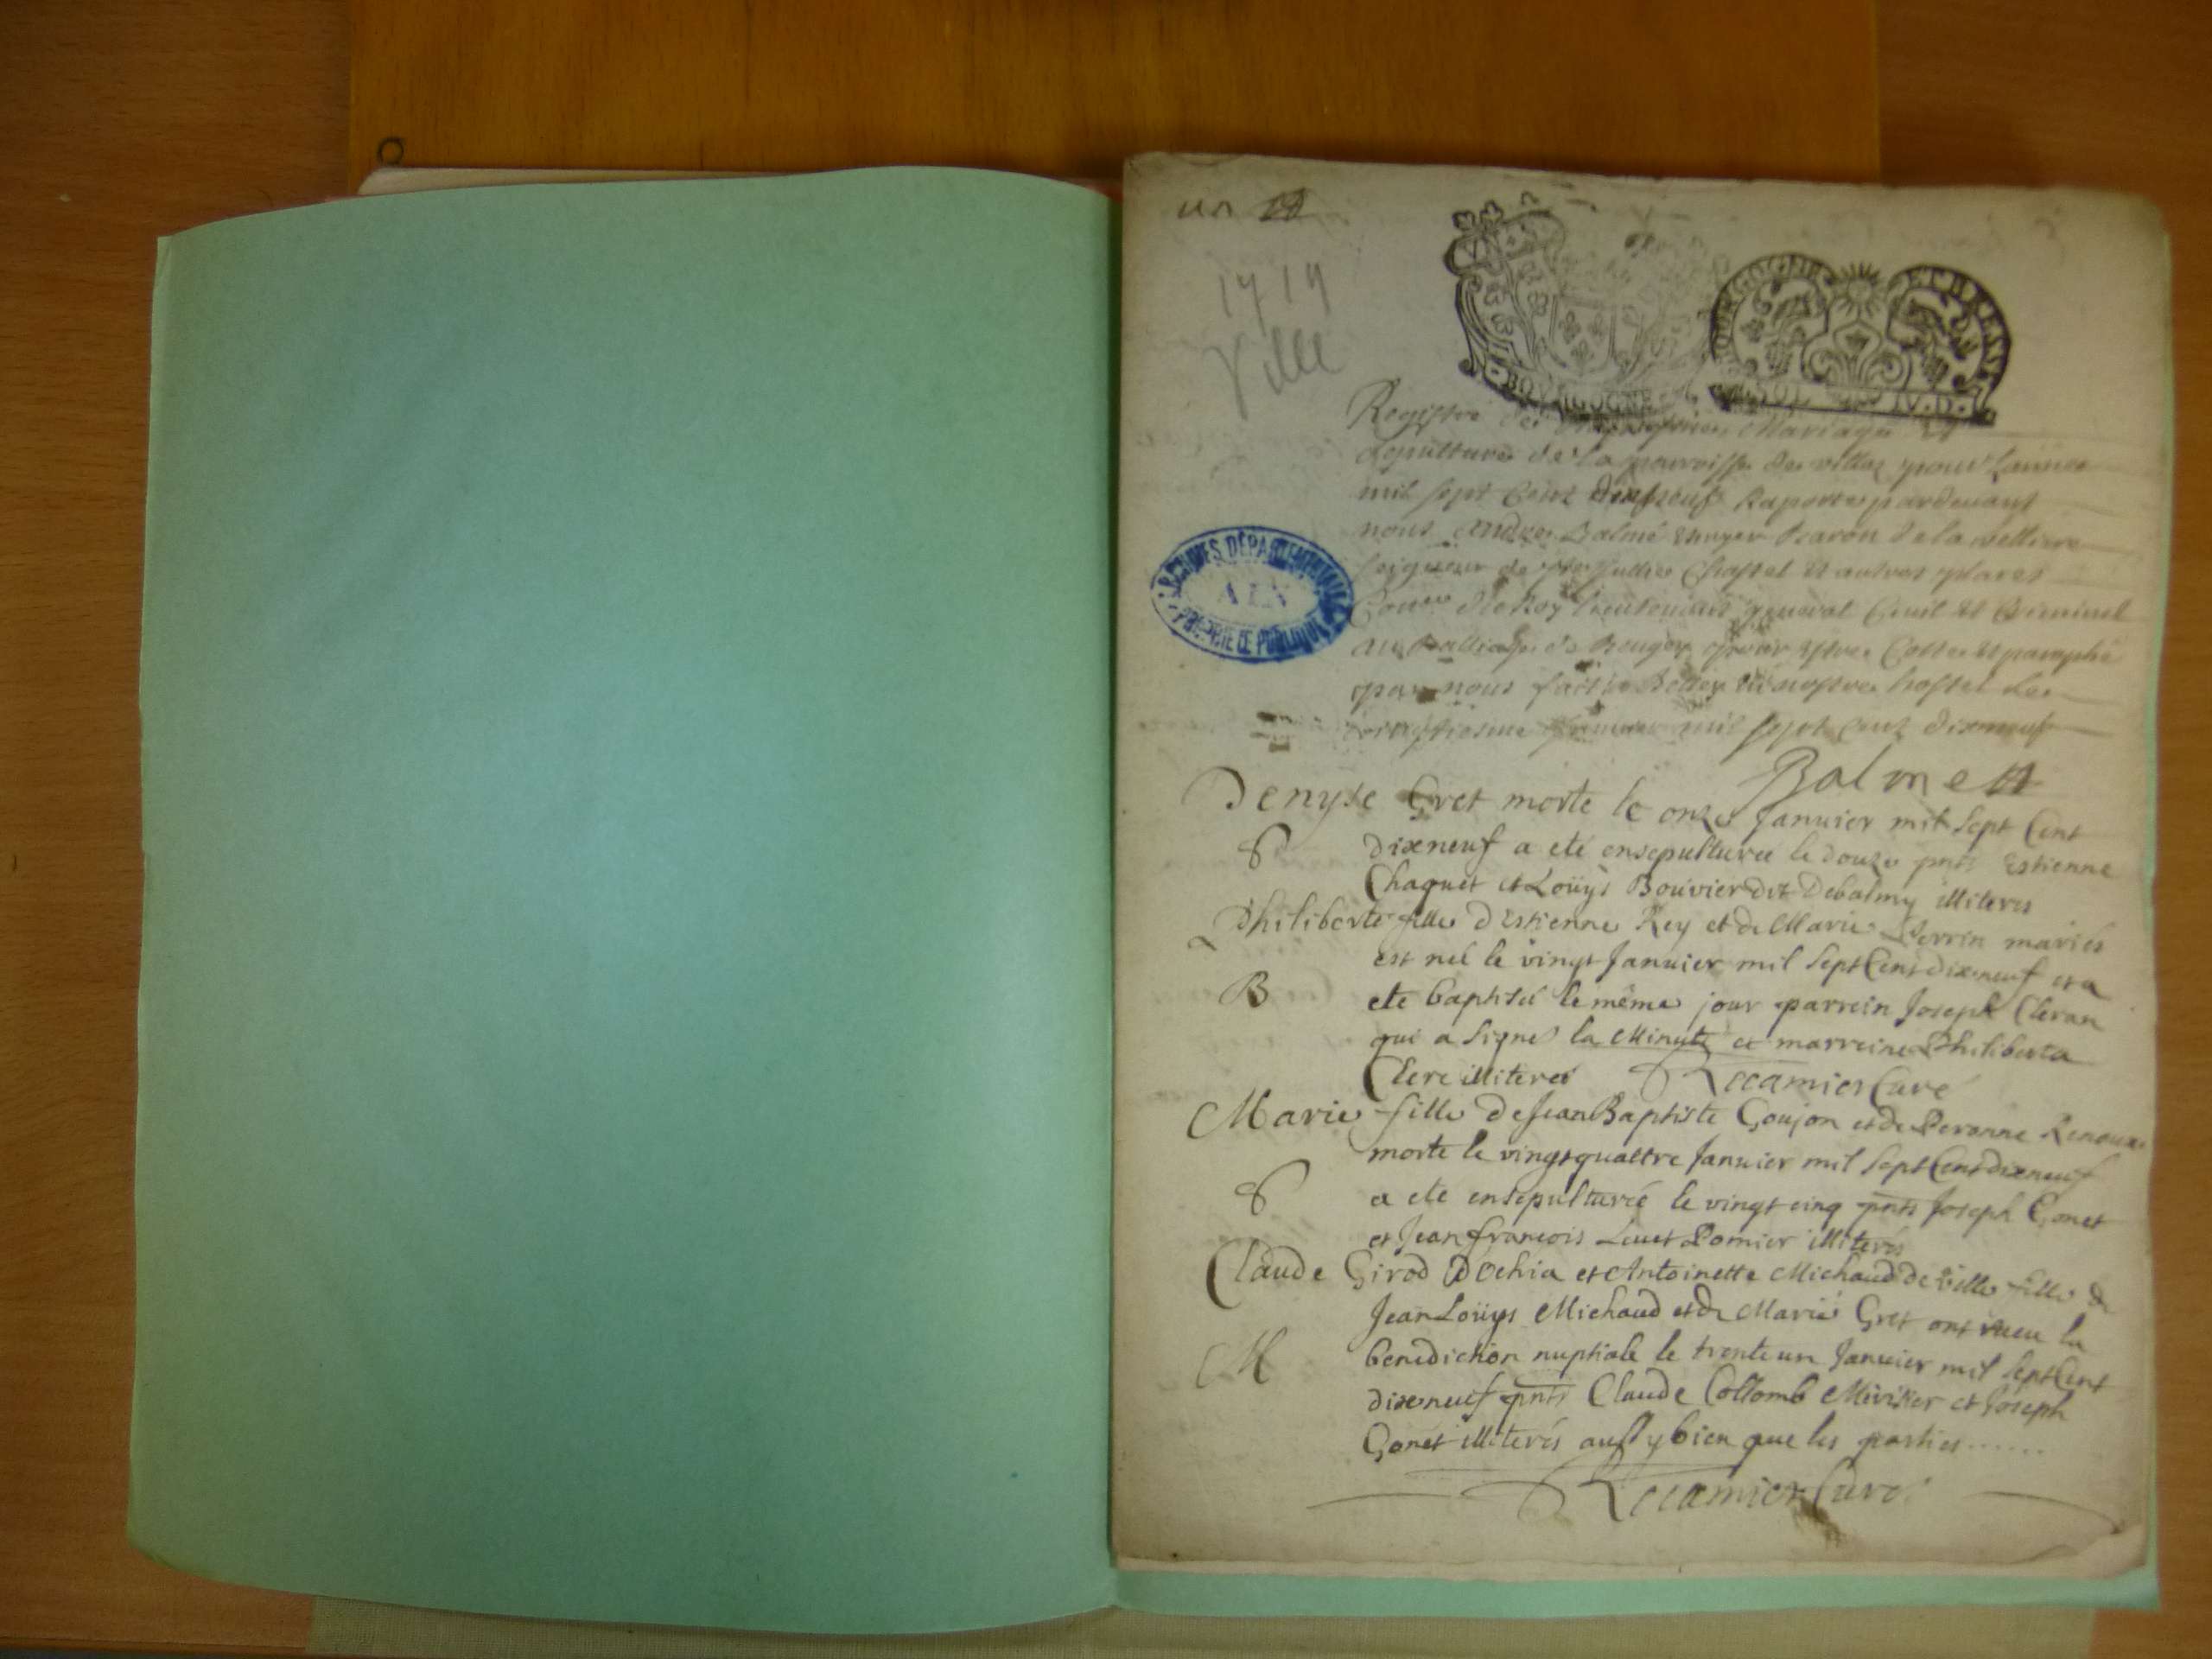 un
1719
Ville
BOURGOGNE
BOURGOGNE ET BRESSE
SOL IV.D.
ARCHIVES DÉPARTEMENTALES
AIN
PROPRIÉTÉ PUBLIQUE
Registre des Mariages et
sepultures de la parroisse de villaz pour l'année
mil sept cent dixneuf Raporte pardevant
nous Andre Balme Baron de la
seigneur de Chastel et autres places
du Roy lieutenant general Civil et Criminel
au Balliage de Bugey pour estre Cotte et paraphé
par nous fait a Belley en nostre hostel le
Janvier mil sept cent dixneuf
Balme
Denyse Gret morte le onze Januier mil sept Cent
S dixneuf a eté ensepulturee le douze pnts Estienne
Chaquet et Loüys Bouvier dit Debalmy illiterés
Philiberte fille d'Estienne Rey et de Marie Perrin mariés
est neé le vingt Januier mil sept Cent dixneuf et a
B ete baptisé le même jour parrein Joseph Cleran
qui a signé la Minute et marreine Philiberta
Clere illiteres Recamier Curé
Marie fille de Jean Baptiste Goujon et de Peronne
morte le vingt quattre Januier mil sept Cent dixneuf
S a ete ensepulturée le vingt cinq pnts Joseph Gonet
et Jean francois Leuet Pomier illiterés
Claude Girod Dochia et Antoinette Michaud de ville fille de
Jean Loüys Michaud et de Marie Gret ont receu la
M benediction nuptiale le trente un Januier mil sept Cent
dixneuf pnts Claude Collomb Miviser et Joseph
Gonet illiterés aussy bien que les parties ......
Recamier Curé